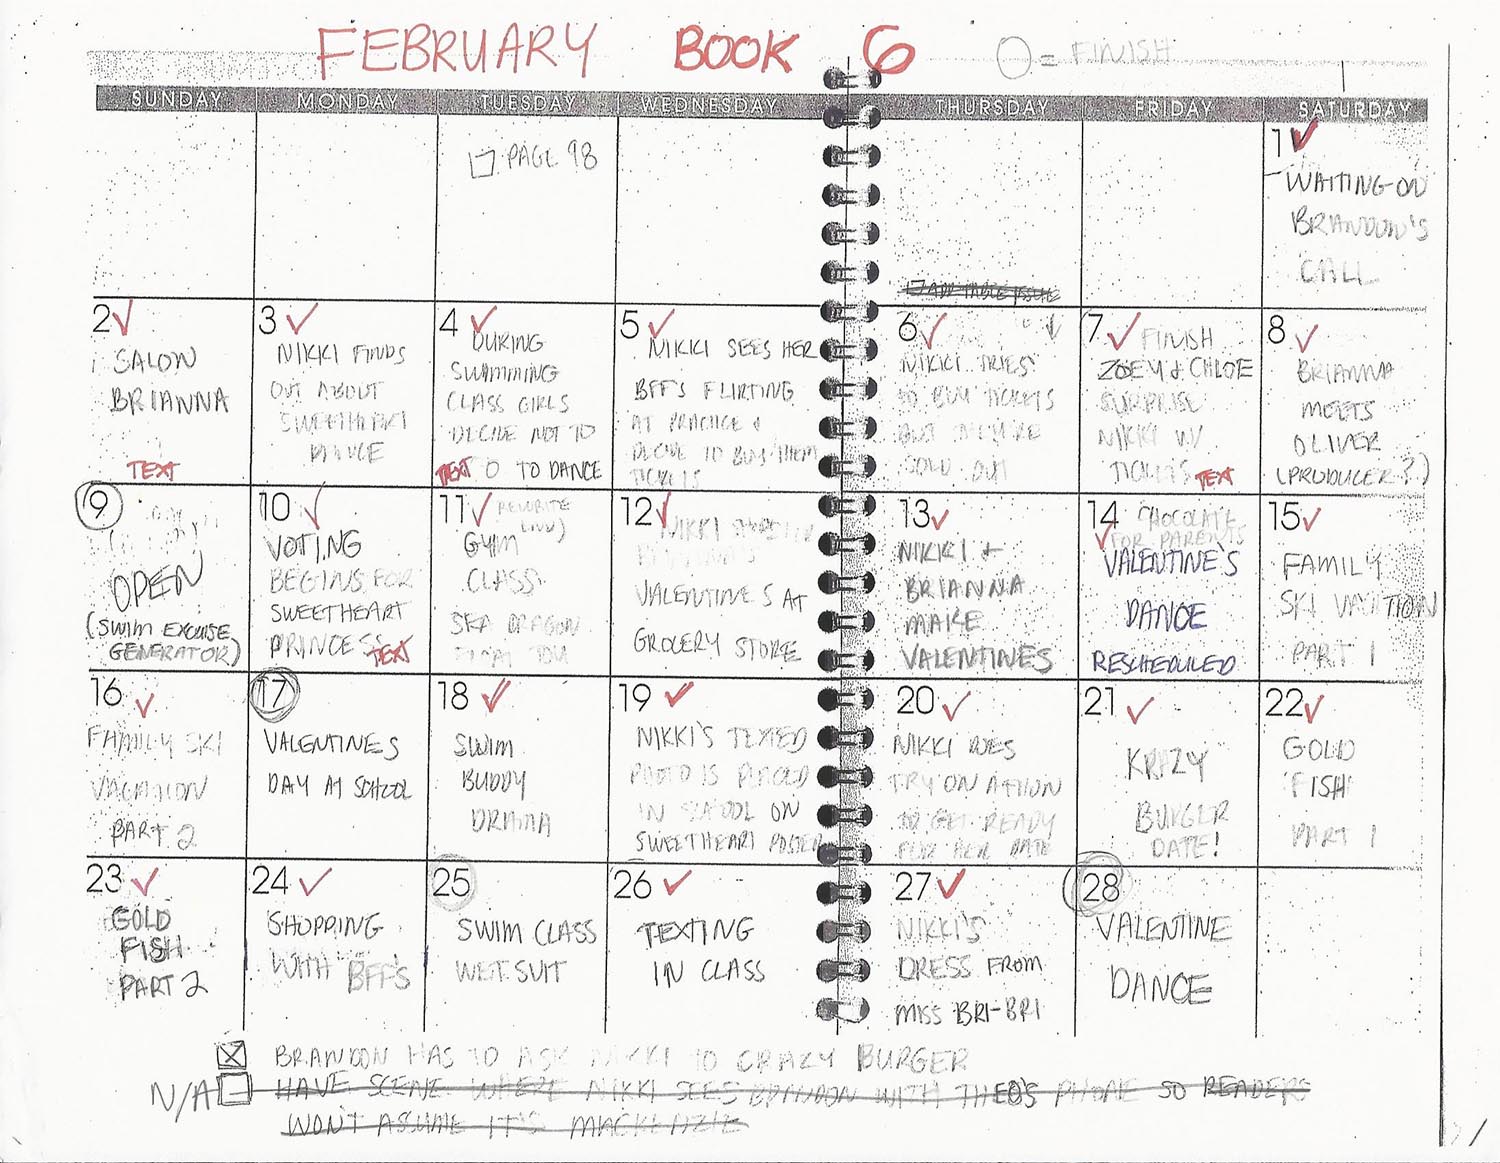 FEBRUARY BOOK 6 O = FINISH
SUNDAY MONDAY TUESDAY WEDNESDAY THURSDAY FRIDAY SATURDAY
PAGE 98
1
WAITING ON
BRANDON'S
CALL
2
SALON
BRIANNA
TEXT
3
NIKKI FINDS
OUT ABOUT
SWEETHEART
DANCE
4
DURING
SWIMMING
CLASS GIRLS
DECIDE NOT TO
TEXT GO TO DANCE
5
NIKKI SEES HER
BFF'S FLIRTING
AT PRACTICE &
DECIDE TO BUY THEM
TICKETS
6
NIKKI TRIES
TO BUY TICKETS
BUT THEY'RE
SOLD OUT
7 FINISH
ZOEY & CHLOE
SURPRISE
NIKKI W/
TICKETS TEXT
8
BRIANNA
MEETS
OLIVER
(PRODUCER?)
9
OPEN
(SWIM EXCUSE
GENERATOR)
10
VOTING
BEGINS FOR
SWEETHEART
PRINCESS TEXT
11 REWRITE
GYM
CLASS
12
NIKKI
VALENTINE'S AT
GROCERY STORE
13
NIKKI +
BRIANNA
MAKE
VALENTINES
14 CHOCOLATE
FOR PARENTS
VALENTINE'S
DANCE
RESCHEDULED
15
FAMILY
SKI VACATION
PART 1
16
FAMILY SKI
VACATION
PART 2
17
VALENTINES
DAY AT SCHOOL
18
SWIM
BUDDY
DRAMA
19
NIKKI'S TEXTED
PHOTO IS PLACED
IN SCHOOL ON
SWEETHEART POSTER
20
NIKKI DOES
TRY ON ATHON
TO GET READY
FOR HER DATE
21
KRAZY
BURGER
DATE!
22
GOLD
FISH
PART 1
23
GOLD
FISH
PART 2
24
SHOPPING
WITH BFF'S
25
SWIM CLASS
WET SUIT
26
TEXTING
IN CLASS
27
NIKKI'S
DRESS FROM
MISS BRI-BRI
28
VALENTINE
DANCE
BRANDON HAS TO ASK NIKKI TO CRAZY BURGER
N/A HAVE SCENE WHERE NIKKI SEES BRANDON WITH THEO'S PHONE SO READERS
WON'T ASSUME IT'S MACKENZIE